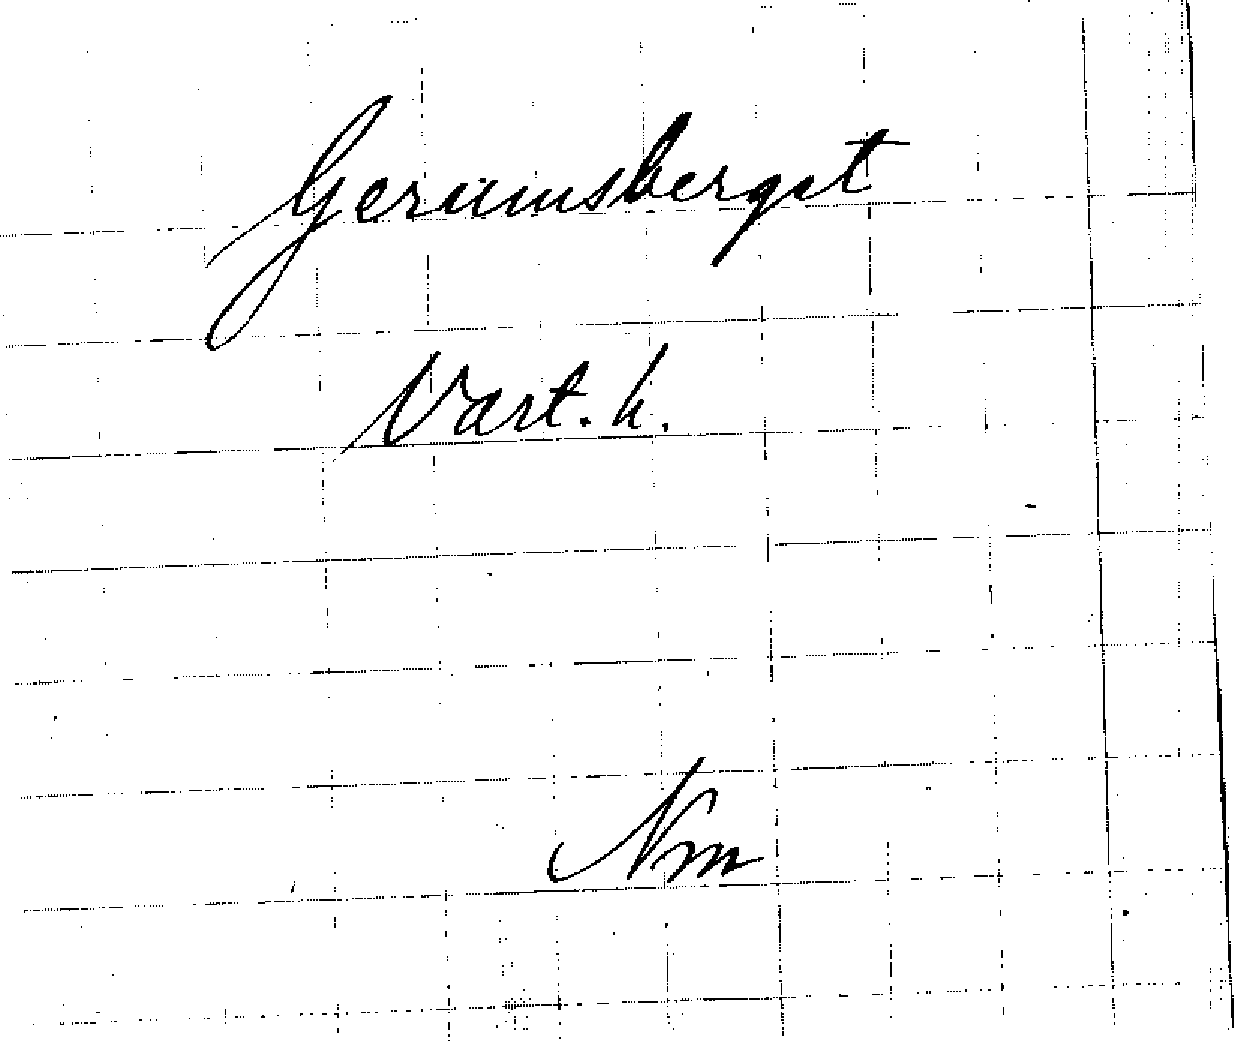 Geraimsberget
Vart. h.
Nm